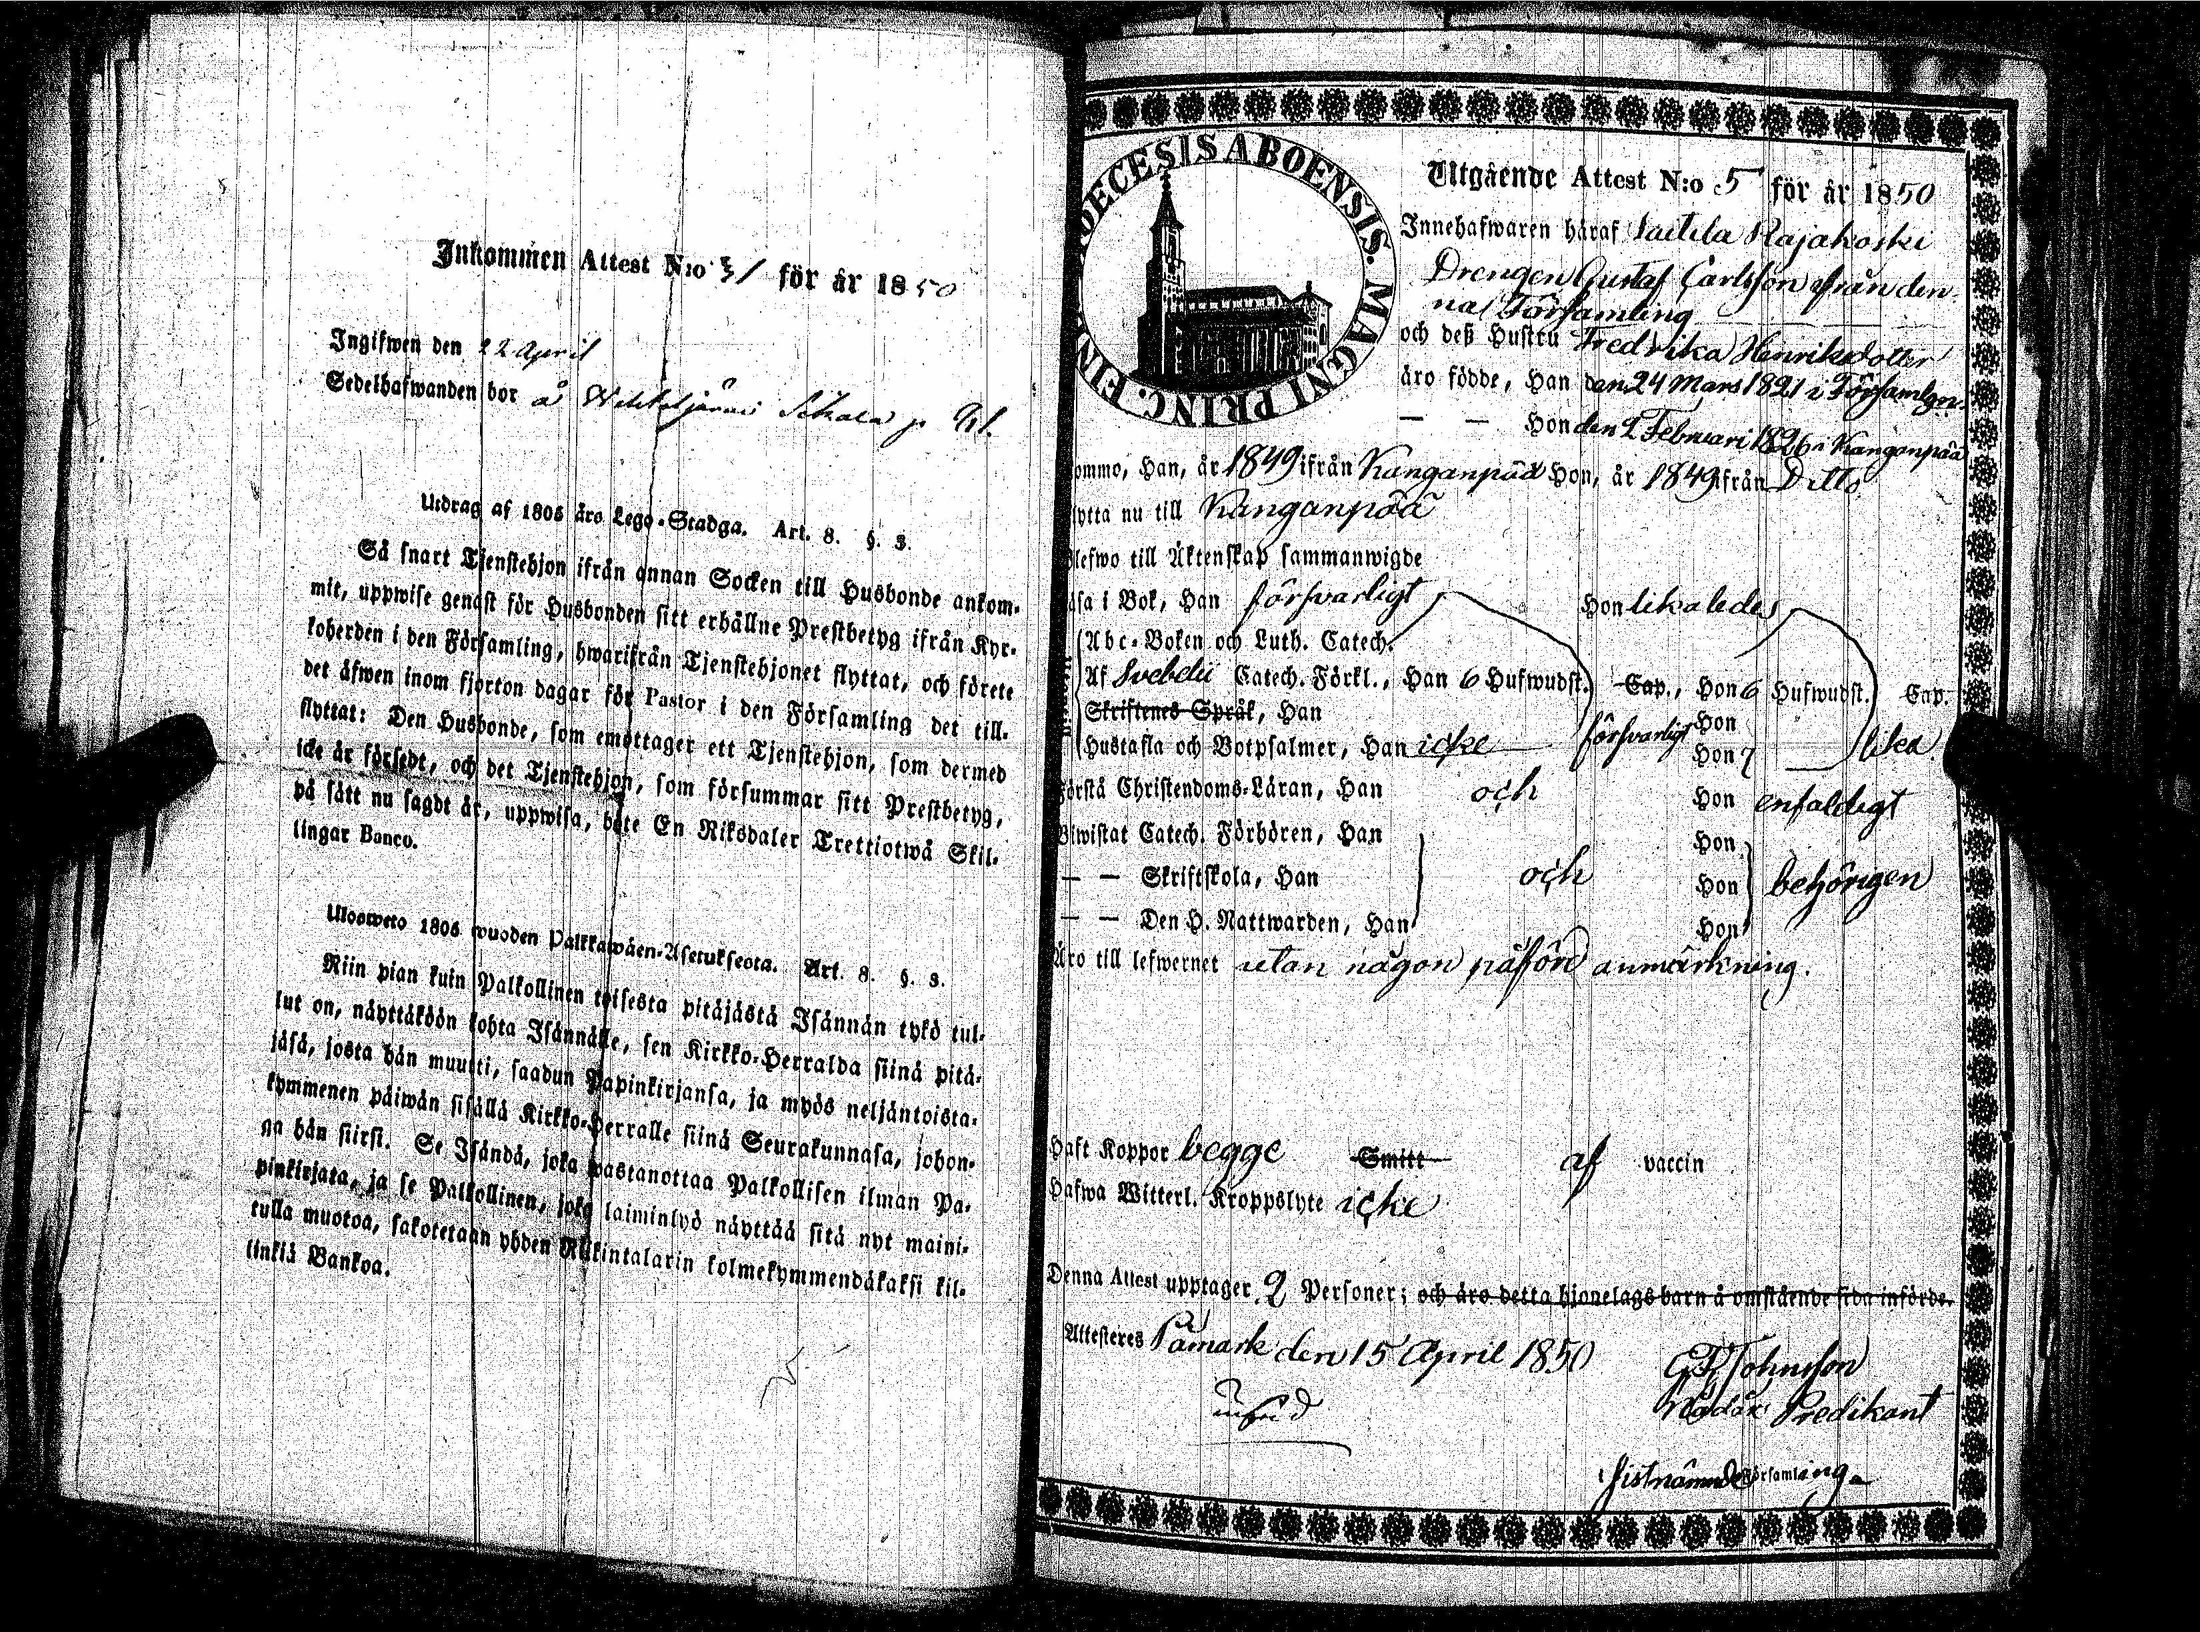 Inkommen Attest N:o 31 för år 1850
Ingifwen den 22 April
Sedelhafwanden bor å
Utdrag af 1805 års Lego-Stadga. Art. 8. §. 3.
Så snart Tjenstehjon ifrån annan Socken till Husbonde ankom-
mit, uppwise genast för Husbonden sitt erhållne Prestbetyg ifrån Kyr-
koherden i den Församling, hwarifrån Tjenstehjonet flyttat, och förete
det äfwen inom fjorton dagar för Pastor i den Församling det till-
flyttat: Den Husbonde, som emottager ett Tjenstehjon, som dermed
icke är försedt, och det Tjenstehjon, som försummar sitt Prestbetyg,
på sätt nu sagdt är, uppwisa, böte En Riksdaler Trettiotwå Skil-
lingar Banco.
Uloosweto 1805 wuoden Palkkawäen-Asetuksesta. Art. 8. §. 3.
Niin pian kuin Palkollinen toisesta pitäjästä Isännän tykö tul-
lut on, näyttäköön kohta Isännälle, sen Kirkko-Herralda siinä pitä-
jäsä, josta hän muutti, saadun Papinkirjansa, ja myös neljäntoista-
kymmenen päiwän sisällä Kirkko-Herralle siinä Seurakunnasa, johon-
ga hän siirsi. Se Isändä, joka wastanottaa Palkollisen ilman Pa-
pinkirjata, ja se Palkollinen, joka laiminlyö näyttää sitä nyt maini-
tulla muotoa, sakotetaan yhden Riikintalarin kolmekymmendäkaksi kil-
linkiä Bankoa.
DIOECESIS ABOENSIS. MAGNI PRINC. FIN
Utgående Attest N:o 5 för år 1850
Innehafwaren häraf Rajakoski
Drengen Gustaf Carlsson från den-
na Församling
och deß Hustru Fredrika Henriksdotter
äro födde, Han den 24 Mars 1821 i Församlgn.
— — Hon den 2 Februari 1826 i Kanganpää
ommo, Han, år 1849 ifrån Kanganpää Hon, år 1849 ifrån Ditto
lytta nu till Kanganpää
lefwo till Äktenskap sammanwigde
äsa i Bok, Han försvarligt Hon likaledes
Abc-Boken och Luth. Catech.
Af Svebelii Catech. Förkl., Han 6 Hufwudst. Cap., Hon 6 Hufwudst. Cap.
Skriftenes Språk, Han försvarligt Hon lika
Hustafla och Botpsalmer, Han icke Hon
örstå Christendoms-Läran, Han och Hon enfaldigt
Biwistat Catech. Förhören, Han Hon
— — Skriftskola, Han och Hon behörigen
— — Den H. Nattwarden, Han Hon
Äro till lefwernet utan någon påförd anmärkning.
Haft Koppor begge Smitt af vaccin
Hafwa Witterl. Kroppslyte icke
Denna Attest upptager 2 Personer; och äro detta hjonelags barn å omstående sida införde.
Attesteres Påmark den 15 April 1850
Johnsson
Nådår Predikant
Sistnämnde Församling